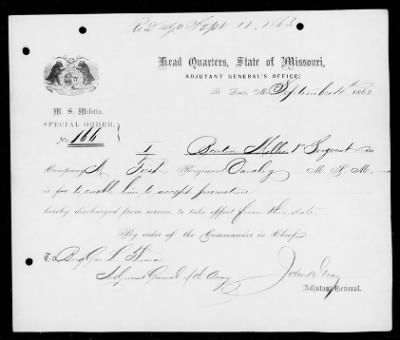 Rec'd Sept 11, 1863
Head Quarters, State of Missouri,
ADJUTANT GENERAL'S OFFICE,
St. Louis, Mo., September 4th 1863
M. S. Militia.
SPECIAL ORDER,
No. 166
1 Miller 1st Sergeant
Company A First Regiment Cavalry M. S. M.
is for to enable him to accept promotion
hereby discharged from service, to take effect from this date.
By order of the Commander in Chief,
To Brig Gen L Thomas
Adjutant General of the Army
John B Gray
Adjutant General.